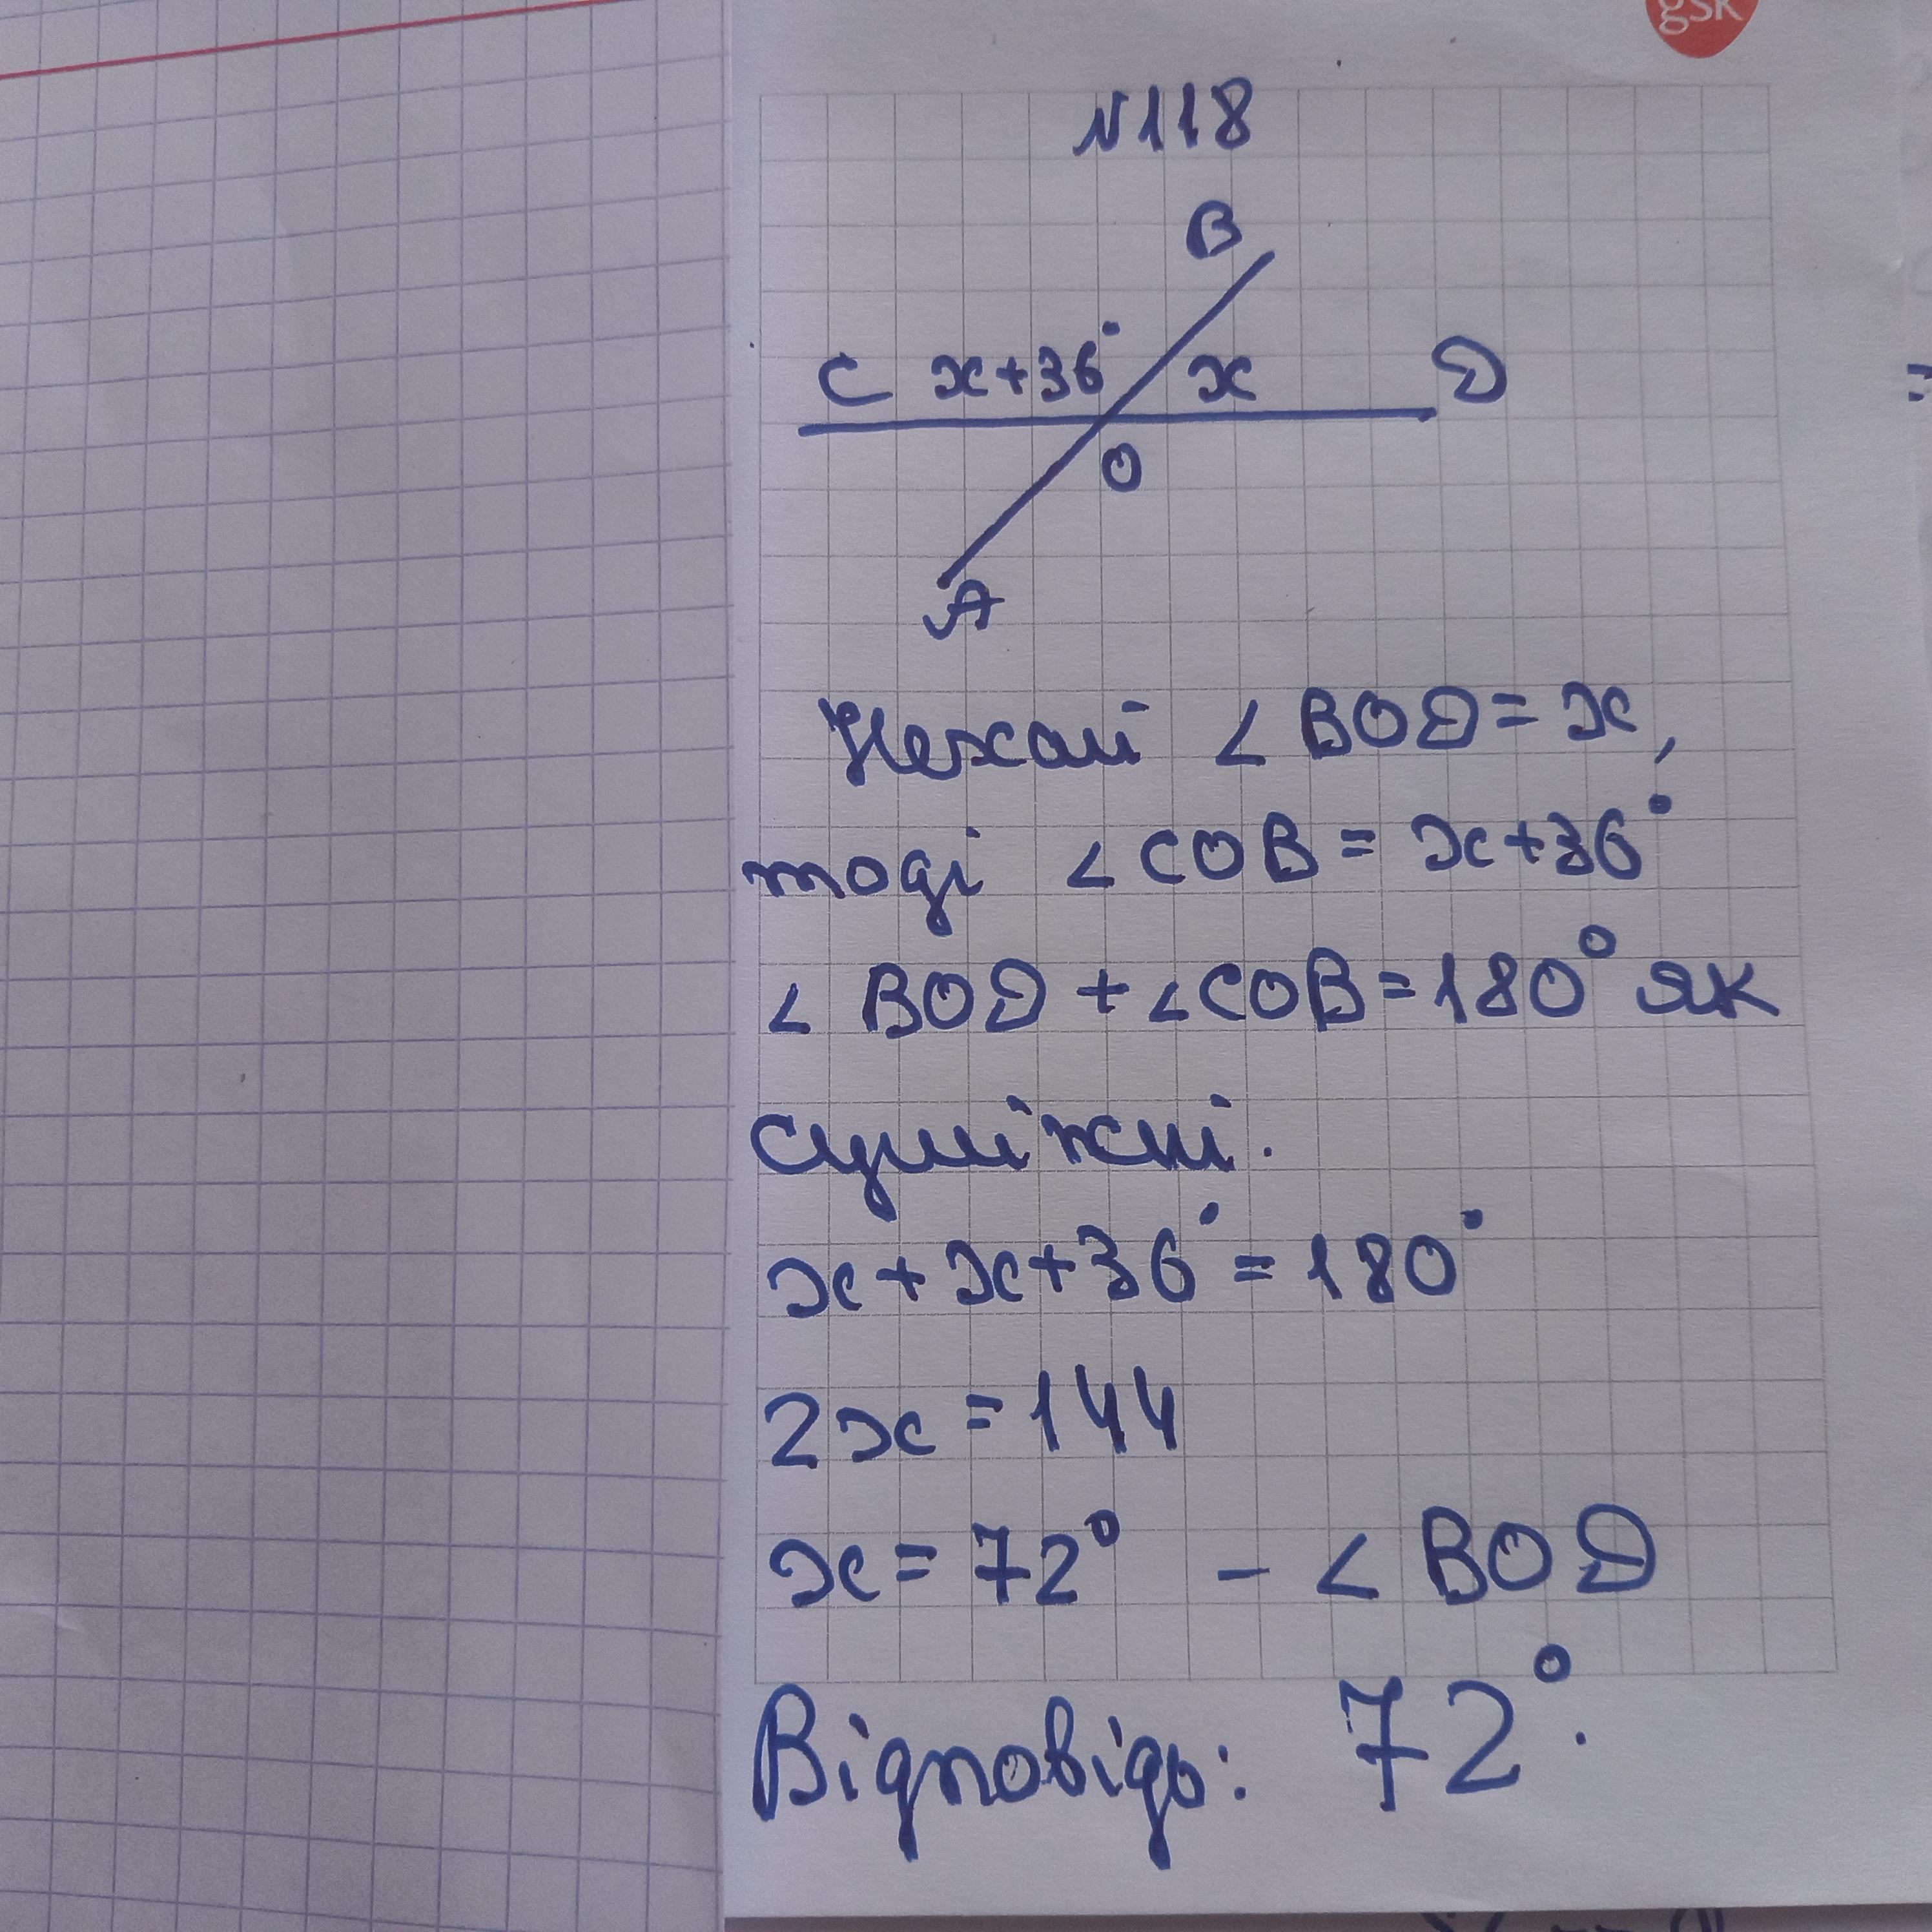 gsk
N118
B
C x+36° x D
O
A
Нехай ∠BOD = x,
тоді ∠COB = x+36°
∠BOD + ∠COB = 180° як
суміжні.
x + x + 36° = 180°
2x = 144
x = 72° - ∠BOD
Відповідь: 72°.